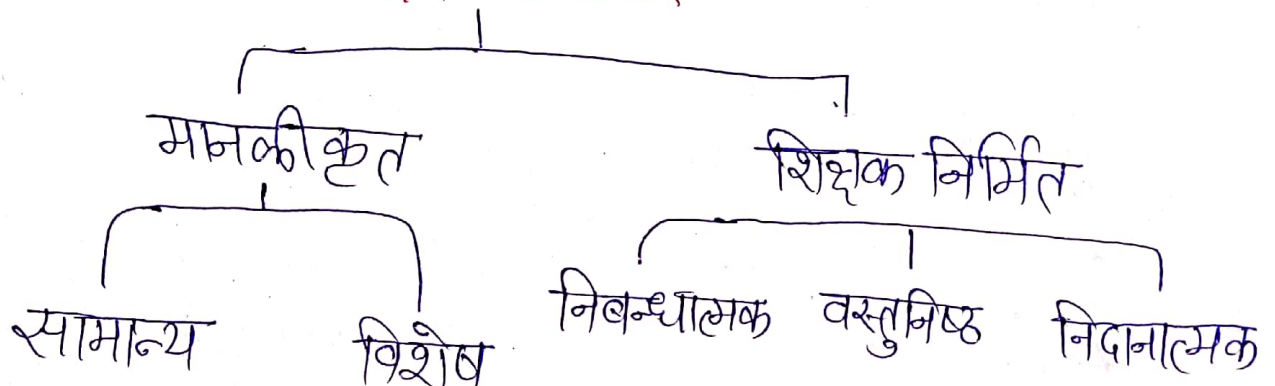 मानकीकृत
शिक्षक निर्मित
सामान्य
विशेष
निबन्धात्मक
वस्तुनिष्ठ
निदानात्मक